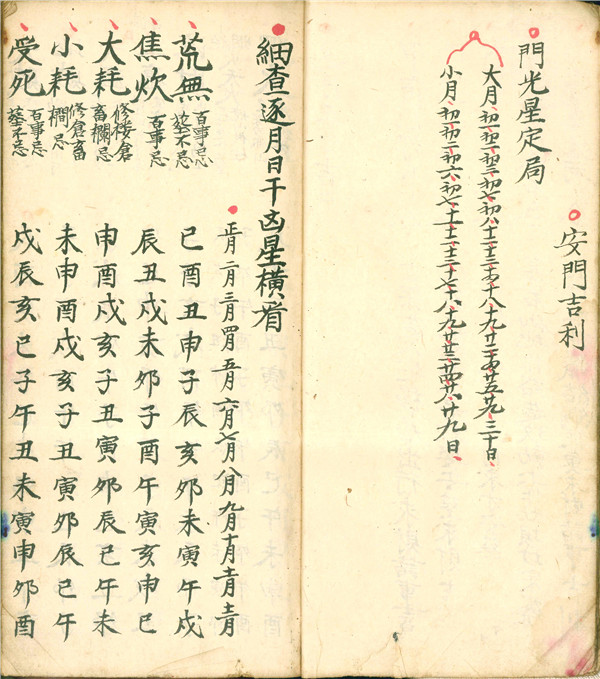 安門吉利
門光星定局
大月、初一初二初三初七初八十二十三十四十八十九二十廿四廿五廿九、三十日、
小月、初一初二初六初七十一十二十三十七十八十九廿三廿四廿八廿九日、
細查逐月日干凶星橫看
正月二月三月四月五月六月七月八月九月十月十一月十二月
荒無 百事忌 塟不忌 巳酉丑申子辰亥卯未寅午戌
焦炊 百事忌 辰丑戌未卯子酉午寅亥申巳
大耗 修楼倉 畜欄忌 申酉戌亥子丑寅卯辰巳午未
小耗 修倉畜 欄忌 未申酉戌亥子丑寅卯辰巳午
受死 百事忌 塟不忌 戌辰亥巳子午丑未寅申卯酉